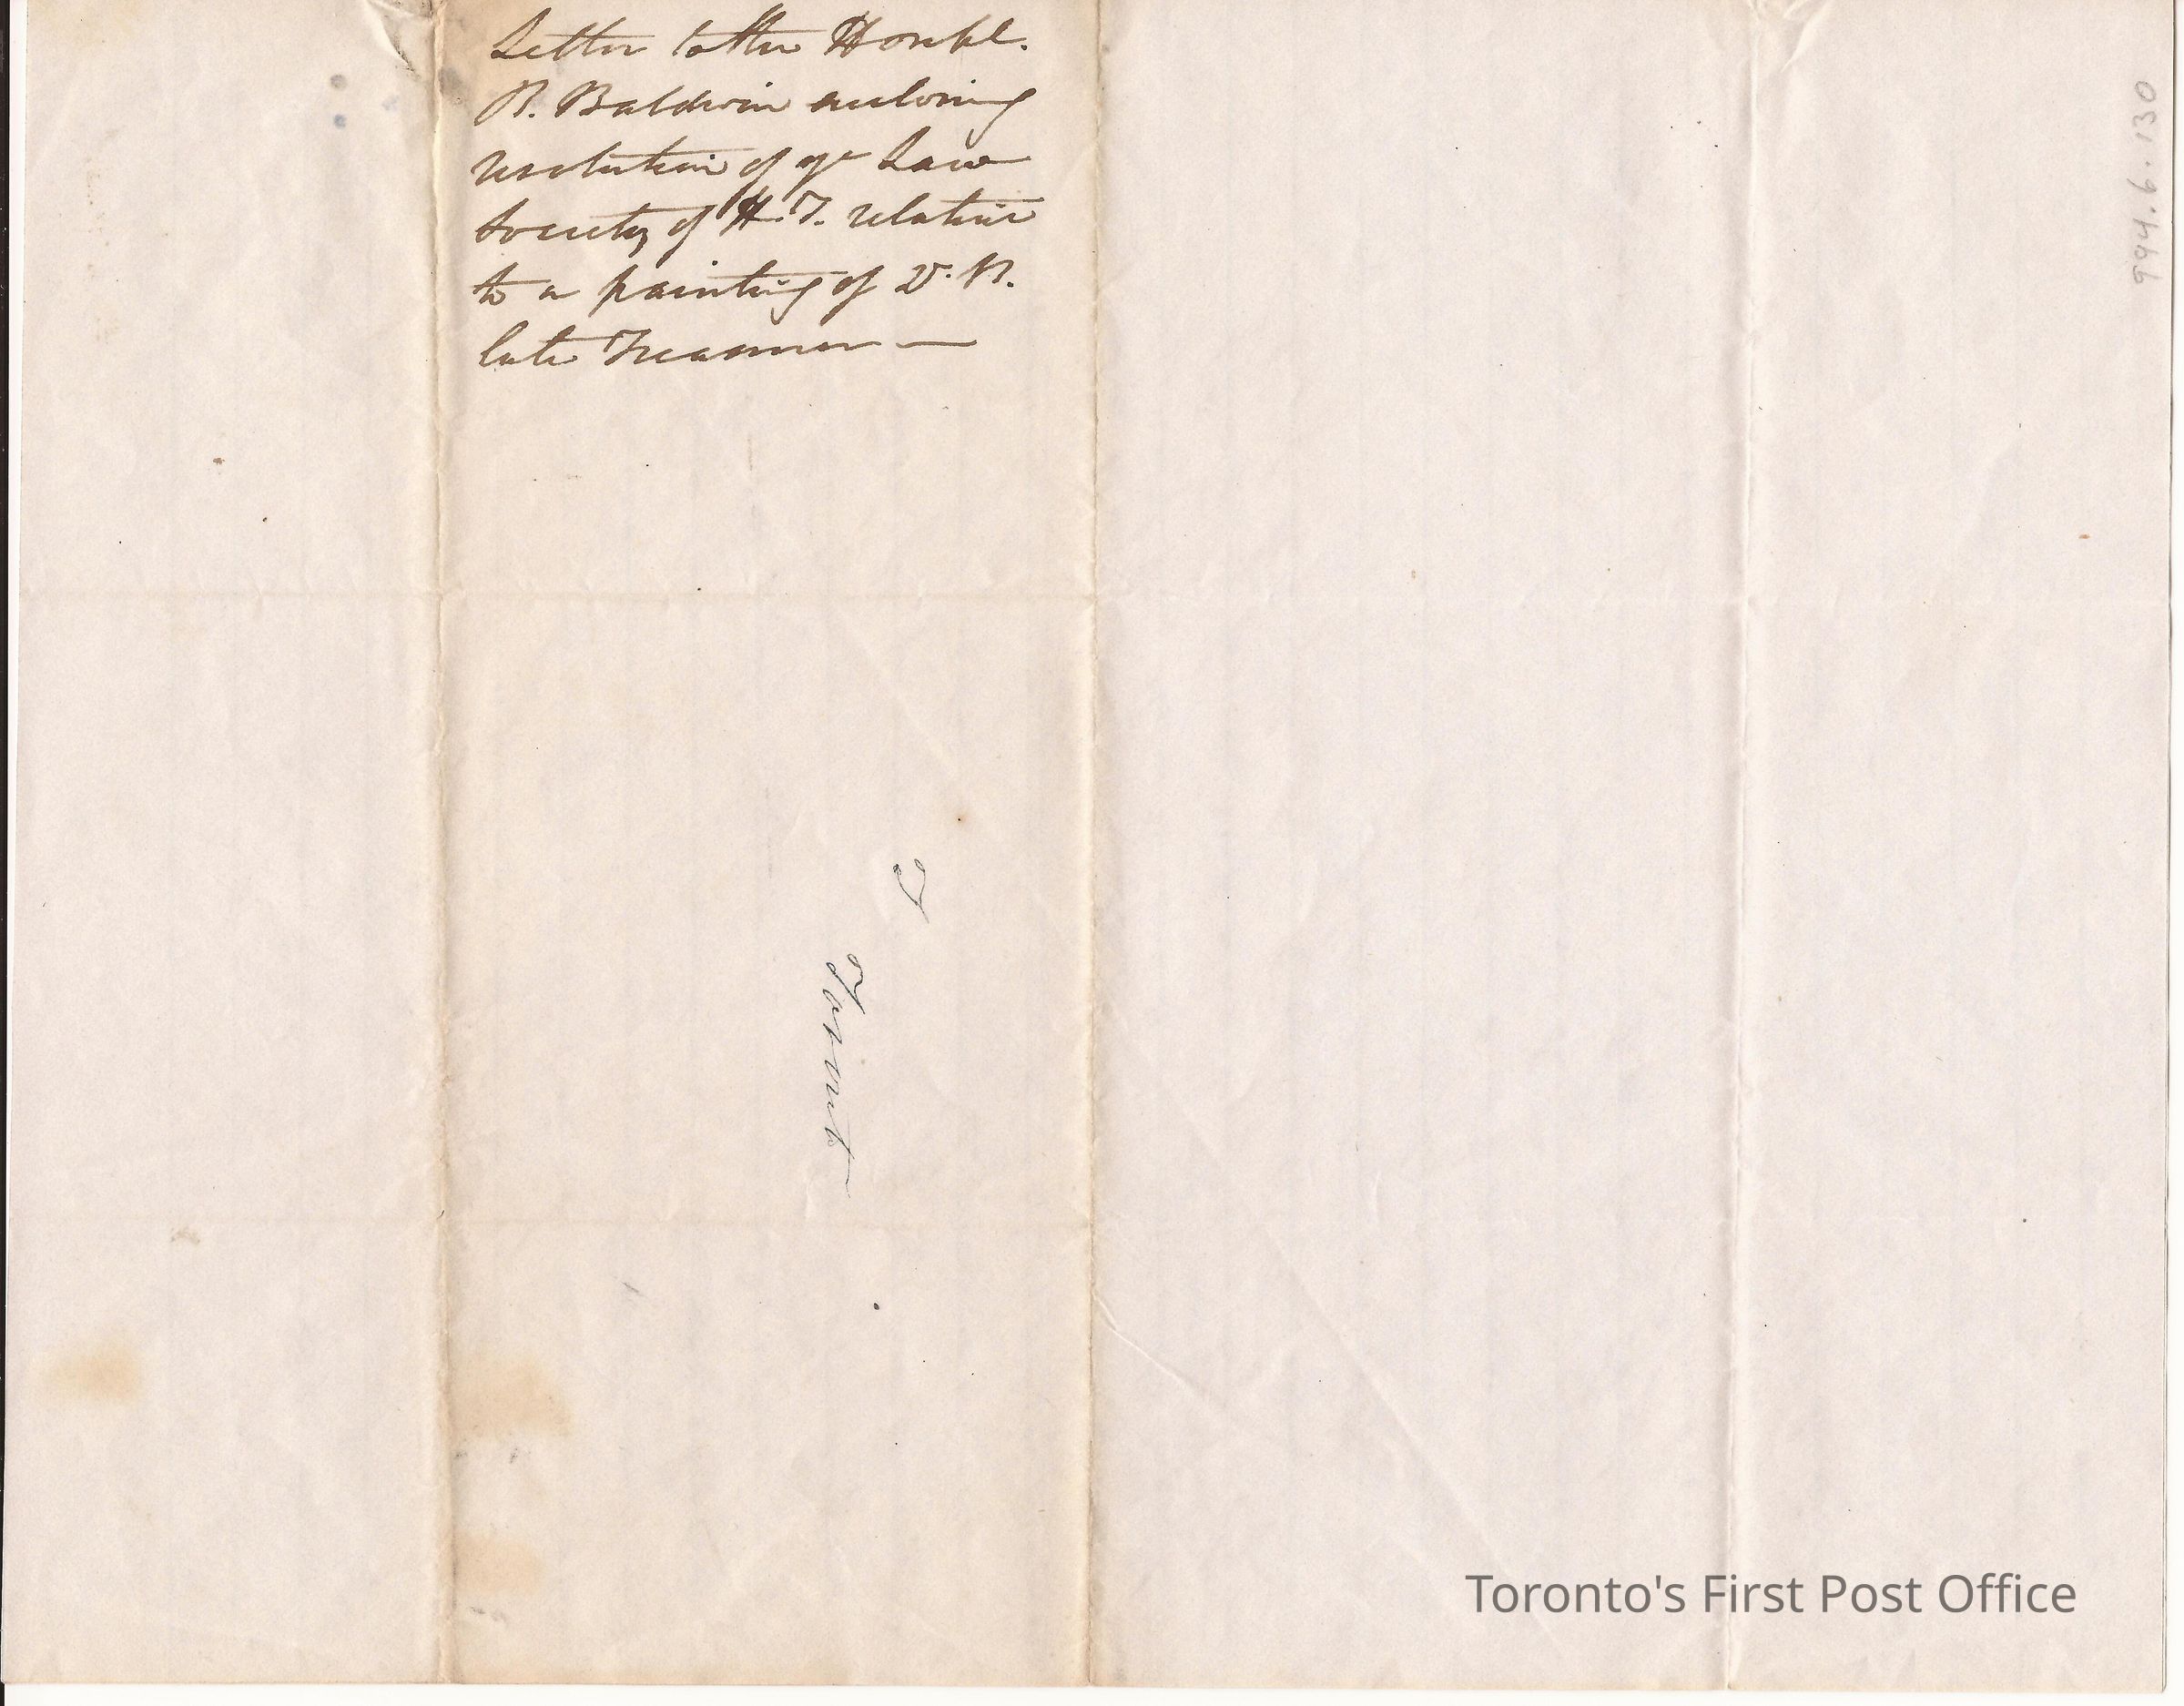 Letter to the Honble.
R. Baldwin enclosing
resolution of ye Law
Society of H.T. relative
to a painting of
late Treasurer —
Toronto
994.6.130
Toronto's First Post Office